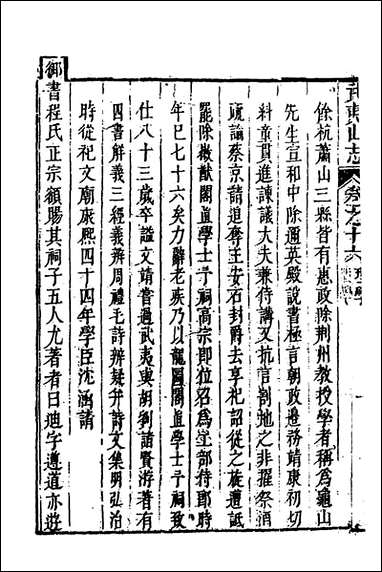 武夷山志
卷之十六
餘杭蕭山三縣皆有惠政除荆州教授學者稱爲龜山
先生宣和中除邇英殿說書極言朝政邊務靖康初切
料童貫進諫議大夫兼侍講又抗言割地之非擢祭酒
疏論蔡京請追奪王安石封爵去享祀詔從之旋遭詆
罷除徽猷閣直學士予祠高宗即位召爲工部侍郎時
年已七十六矣力辭老疾乃以龍圖閣直學士予祠致
仕八十三歲卒諡文靖嘗過武夷與胡劉諸賢游著有
四書解義三經義辨周禮毛詩辨疑并詩文集明弘治
時從祀文廟康熙四十四年學臣沈涵請
御書程氏正宗額賜其祠子五人尤著者曰迪字遵道亦遊